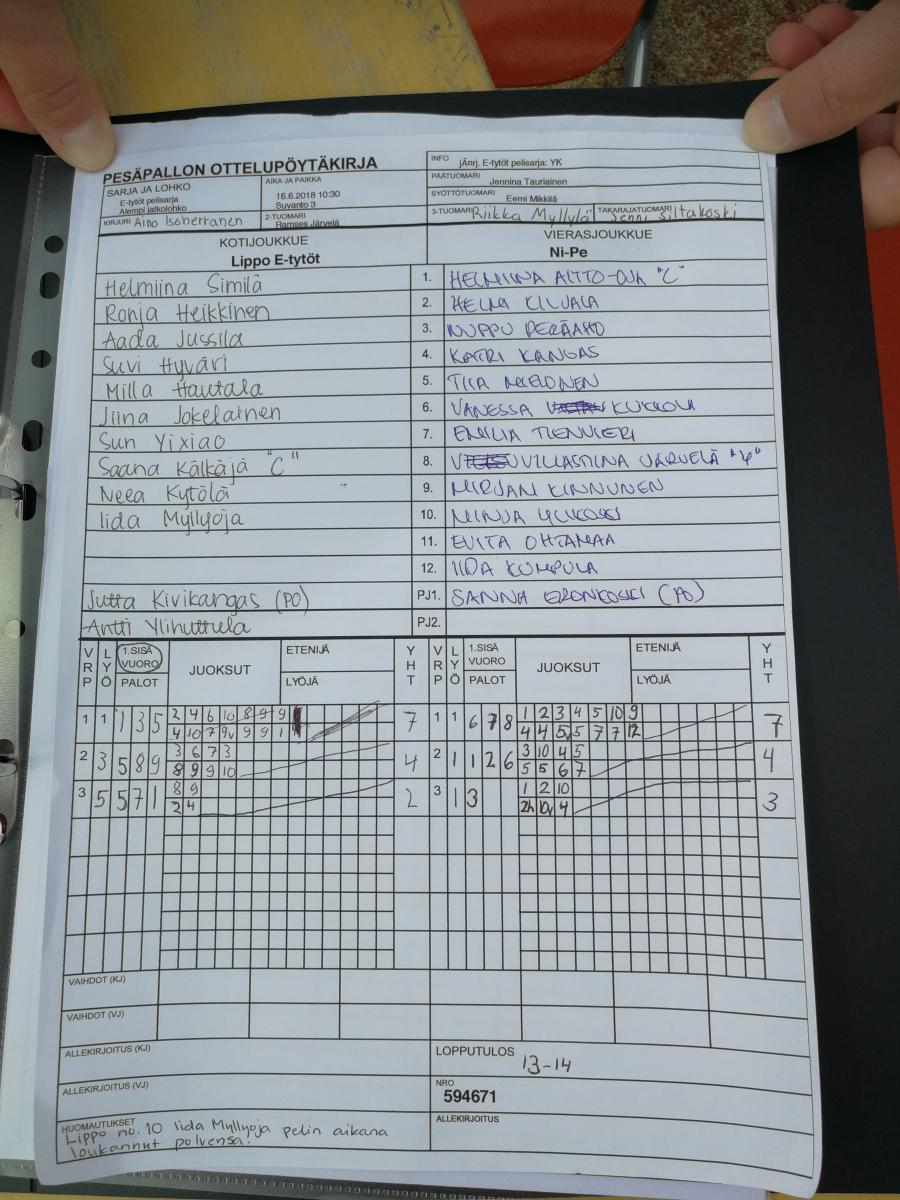 PESÄPALLON OTTELUPÖYTÄKIRJA
INFO jÃ¤rj. E-tytöt pelisarja: YK
SARJA JA LOHKO
E-tytöt pelisarja
Alempi jatkolohko
AIKA JA PAIKKA
16.6.2018 10:30
Suvanto 3
PÄÄTUOMARI Jennina Tauriainen
SYÖTTÖTUOMARI Eemi Mikkilä
KIRJURI Aino Isoherranen
2-TUOMARI Ramses Järvelä
3-TUOMARI Riikka Myllylä
TAKARAJATUOMARI Jenni Siltakoski
KOTIJOUKKUE
Lippo E-tytöt
VIERASJOUKKUE
Ni-Pe
Helmiina Similä 1. HELMIINA AITTO-OJA "C"
Ronja Heikkinen 2. HELMI KILJALA
Aada Jussila 3. NUPPU PERÄAHO
Suvi Hyväri 4. KATRI KANGAS
Milla Hautala 5. TIIA MIELONEN
Jiina Jokelainen 6. VANESSA KUKKOLA
Sun Yixiao 7. EMILIA TIENVIERI
Saana Kälkäjä "C" 8. VILLASTIINA JÄRVELÄ
Neea Kytölä 9. MIRJAMI KINNUNEN
Iida Myllyoja 10. MINJA YLIKOSKI
11. EVITA OHTAMAA
12. IIDA KUMPULA
Jutta Kivikangas (PO) PJ1. SANNA ERONKOSKI (PO)
Antti Ylihuttula PJ2.
VRP LYÖ 1.SISÄ VUORO PALOT JUOKSUT ETENIJÄ LYÖJÄ YHT VRP LYÖ 1.SISÄ VUORO PALOT JUOKSUT ETENIJÄ LYÖJÄ YHT
1 1 1 3 5 2 4 6 10 8 9 9 7 1 1 6 7 8 1 2 3 4 5 10 9 7
4 10 7 9v 9 9 1 4 4 5 5v 7 7 12
2 3 5 8 9 3 6 7 3 4 2 1 1 2 6 3 10 4 5 4
8 9 9 10 5 5 6 7
3 5 5 7 1 8 9 2 3 1 3 1 2 10 3
2 4 2h 10v 4
VAIHDOT (KJ)
VAIHDOT (VJ)
ALLEKIRJOITUS (KJ)
LOPPUTULOS
13-14
ALLEKIRJOITUS (VJ)
NRO
594671
HUOMAUTUKSET
Lippo no. 10 Iida Myllyoja pelin aikana
loukannut polvensa.
ALLEKIRJOITUS